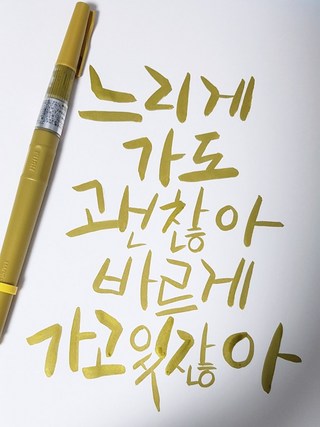 느리게
가도
괜찮아
바르게
가고있잖아